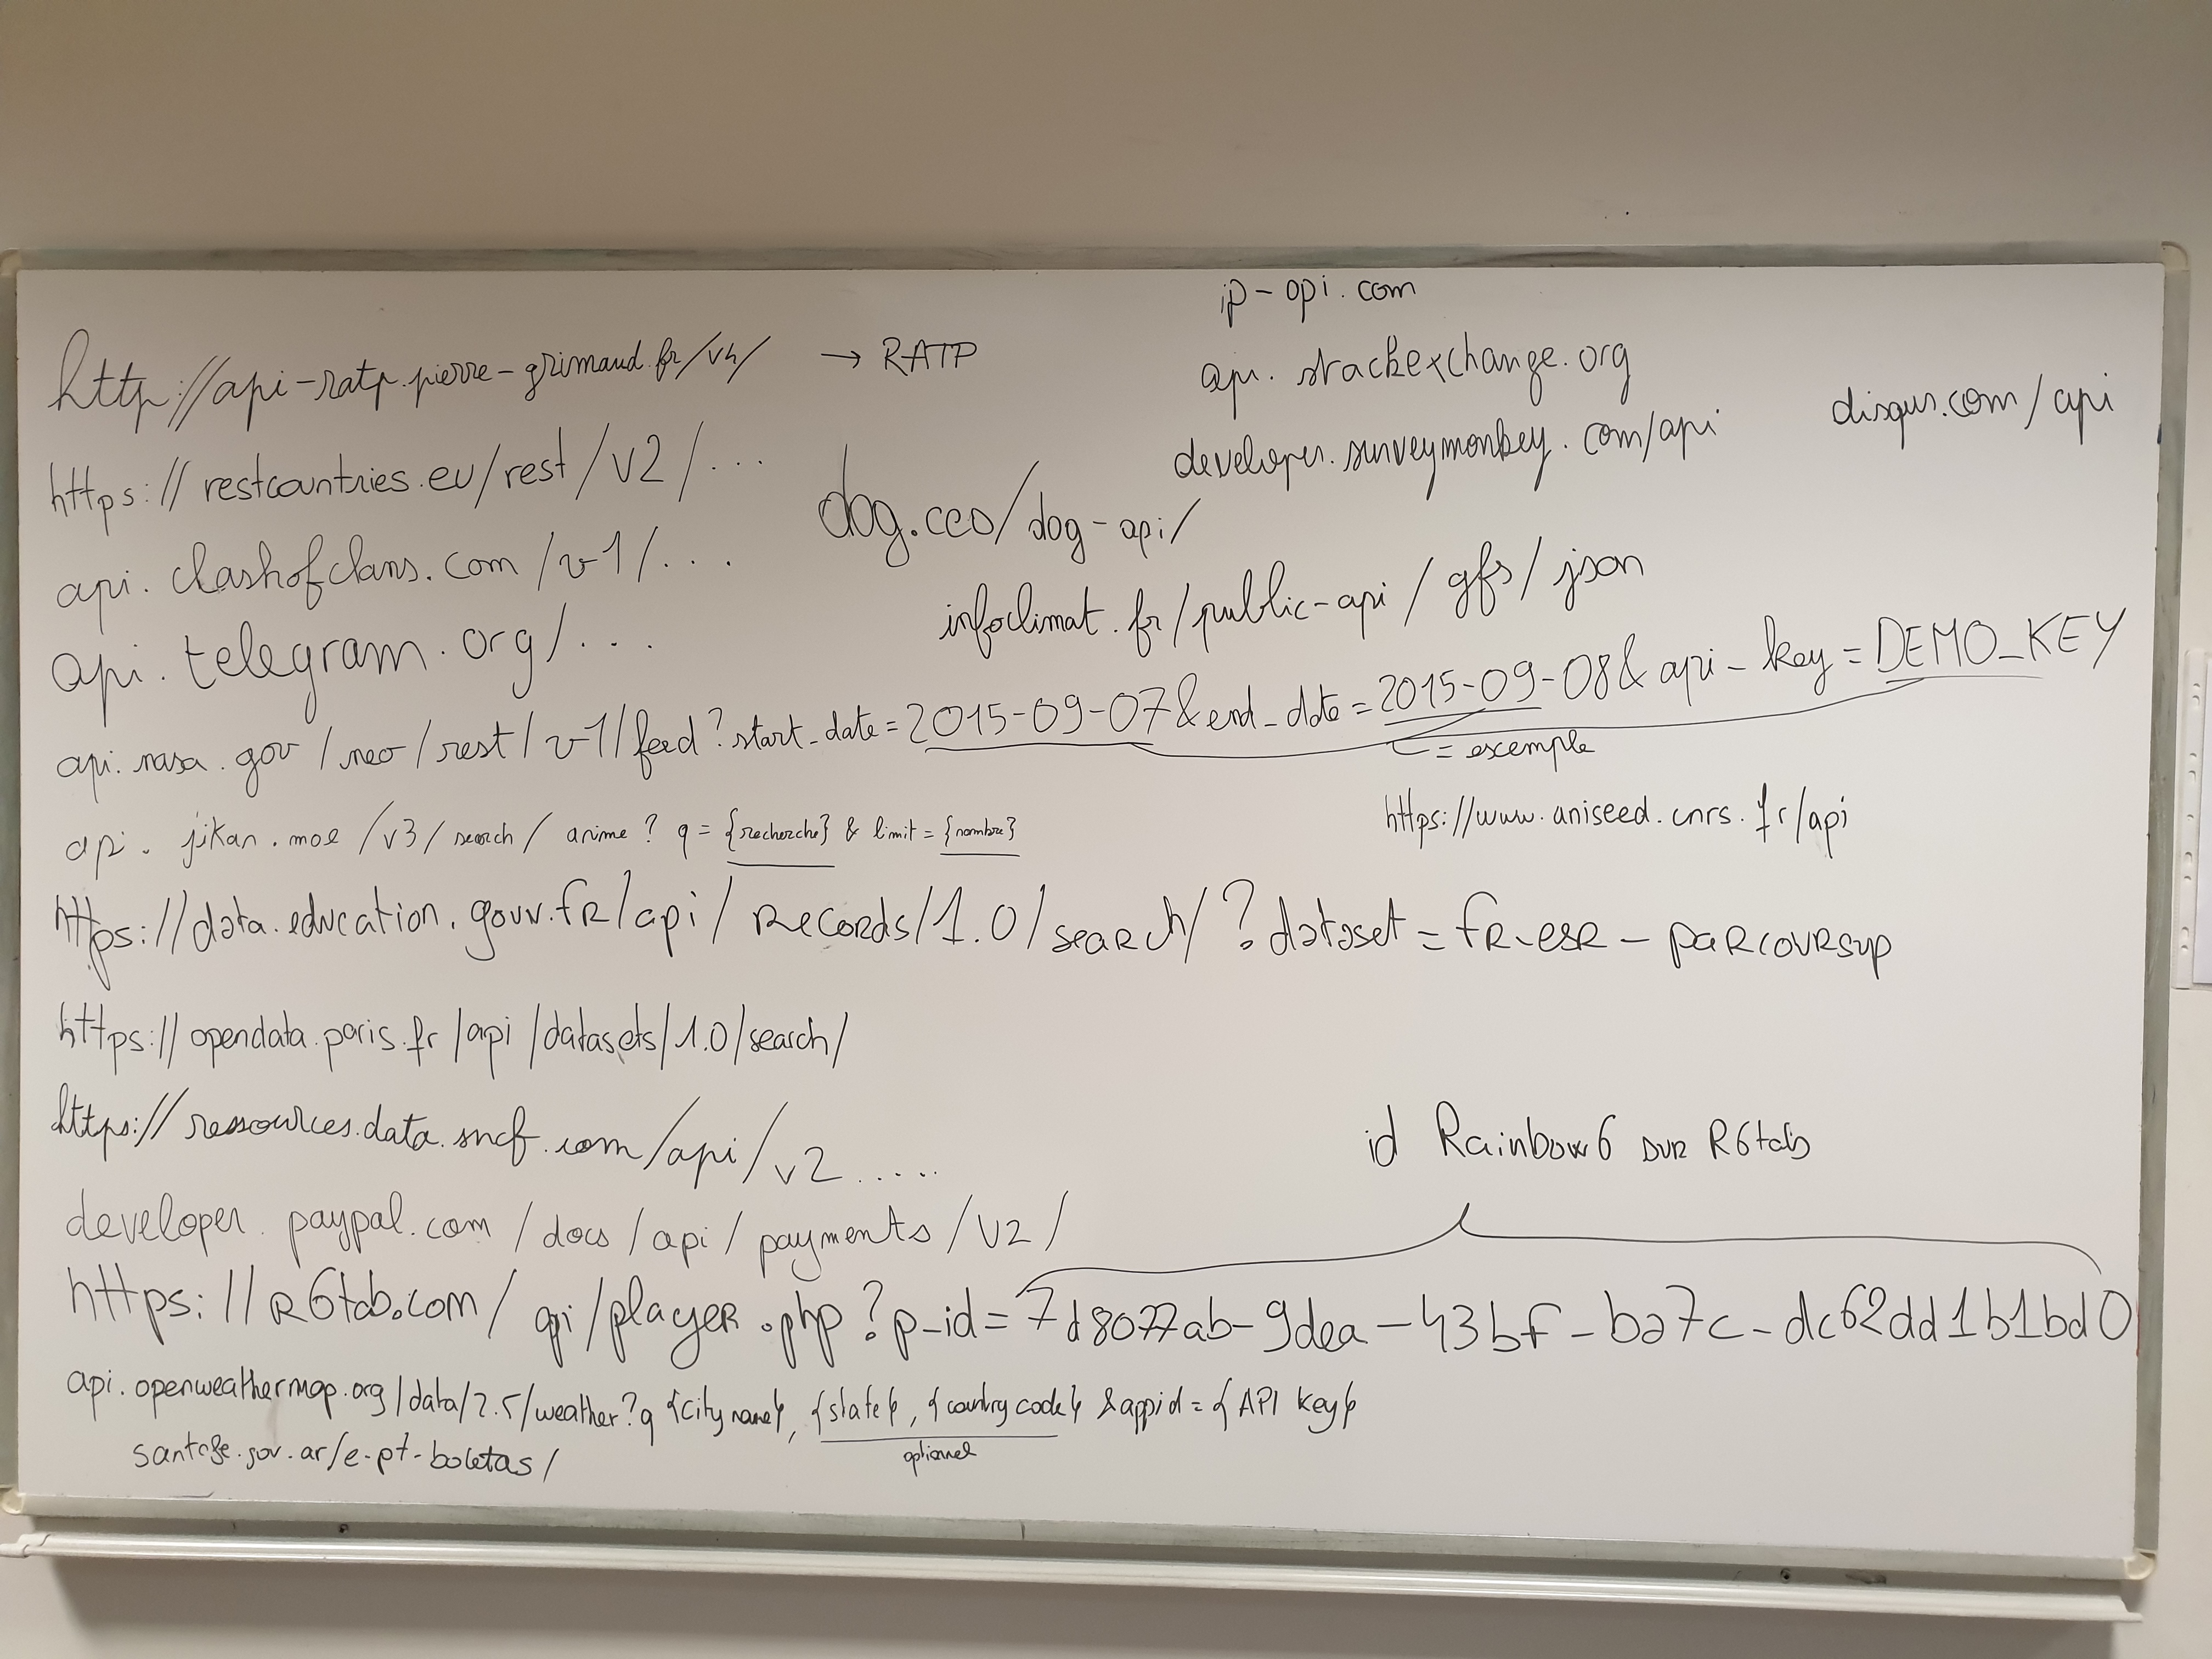 ip-api.com
http://api-ratp.pierre-grimaud.fr/v4/ → RATP
api.stackexchange.org
disqus.com/api
developer.surveymonkey.com/api
https://restcountries.eu/rest/v2/...
dog.ceo/dog-api/
api.clashofclans.com/v1/...
infoclimat.fr/public-api/gfs/json
api.telegram.org/...
api.nasa.gov/neo/rest/v1/feed?start_date=2015-09-07&end_date=2015-09-08&api-key=DEMO_KEY
= exemple
https://www.aniseed.cnrs.fr/api
api.jikan.moe/v3/search/anime?q={recherche}&limit={nombre}
https://data.education.gouv.fr/api/records/1.0/search/?dataset=fr-esr-parcoursup
https://opendata.paris.fr/api/datasets/1.0/search/
https://ressources.data.sncf.com/api/v2.....
id Rainbow6 sur R6tab
developer.paypal.com/docs/api/payments/v2/
https://R6tab.com/api/player.php?p_id=7d8077ab-9dea-43bf-ba7c-dc62dd1b1bd0
api.openweathermap.org/data/2.5/weather?q {city name}, {state}, {country code} &appid={API key}
optionnel
santafe.gov.ar/e-pt-boletas/